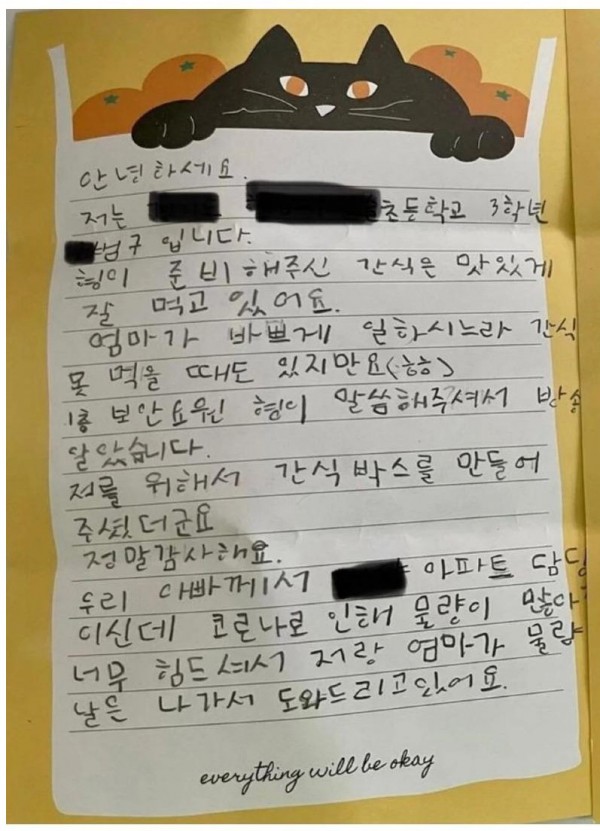 안녕하세요.
저는 초등학교 3학년
범구 입니다.
형이 준비해주신 간식은 맛있게
잘 먹고 있어요.
엄마가 바쁘게 일하시느라 간식
못 먹을 때도 있지만요(하하)
1층 보안요원 형이 말씀해주셔서
알았습니다.
저를 위해서 간식박스를 만들어
주셨더군요
정말감사해요.
우리 아빠께서 아파트 담당
이신데 코로나로 인해 물량이 많아
너무 힘드셔서 저랑 엄마가 물량
날은 나가서 도와드리고있어요.
everything will be okay